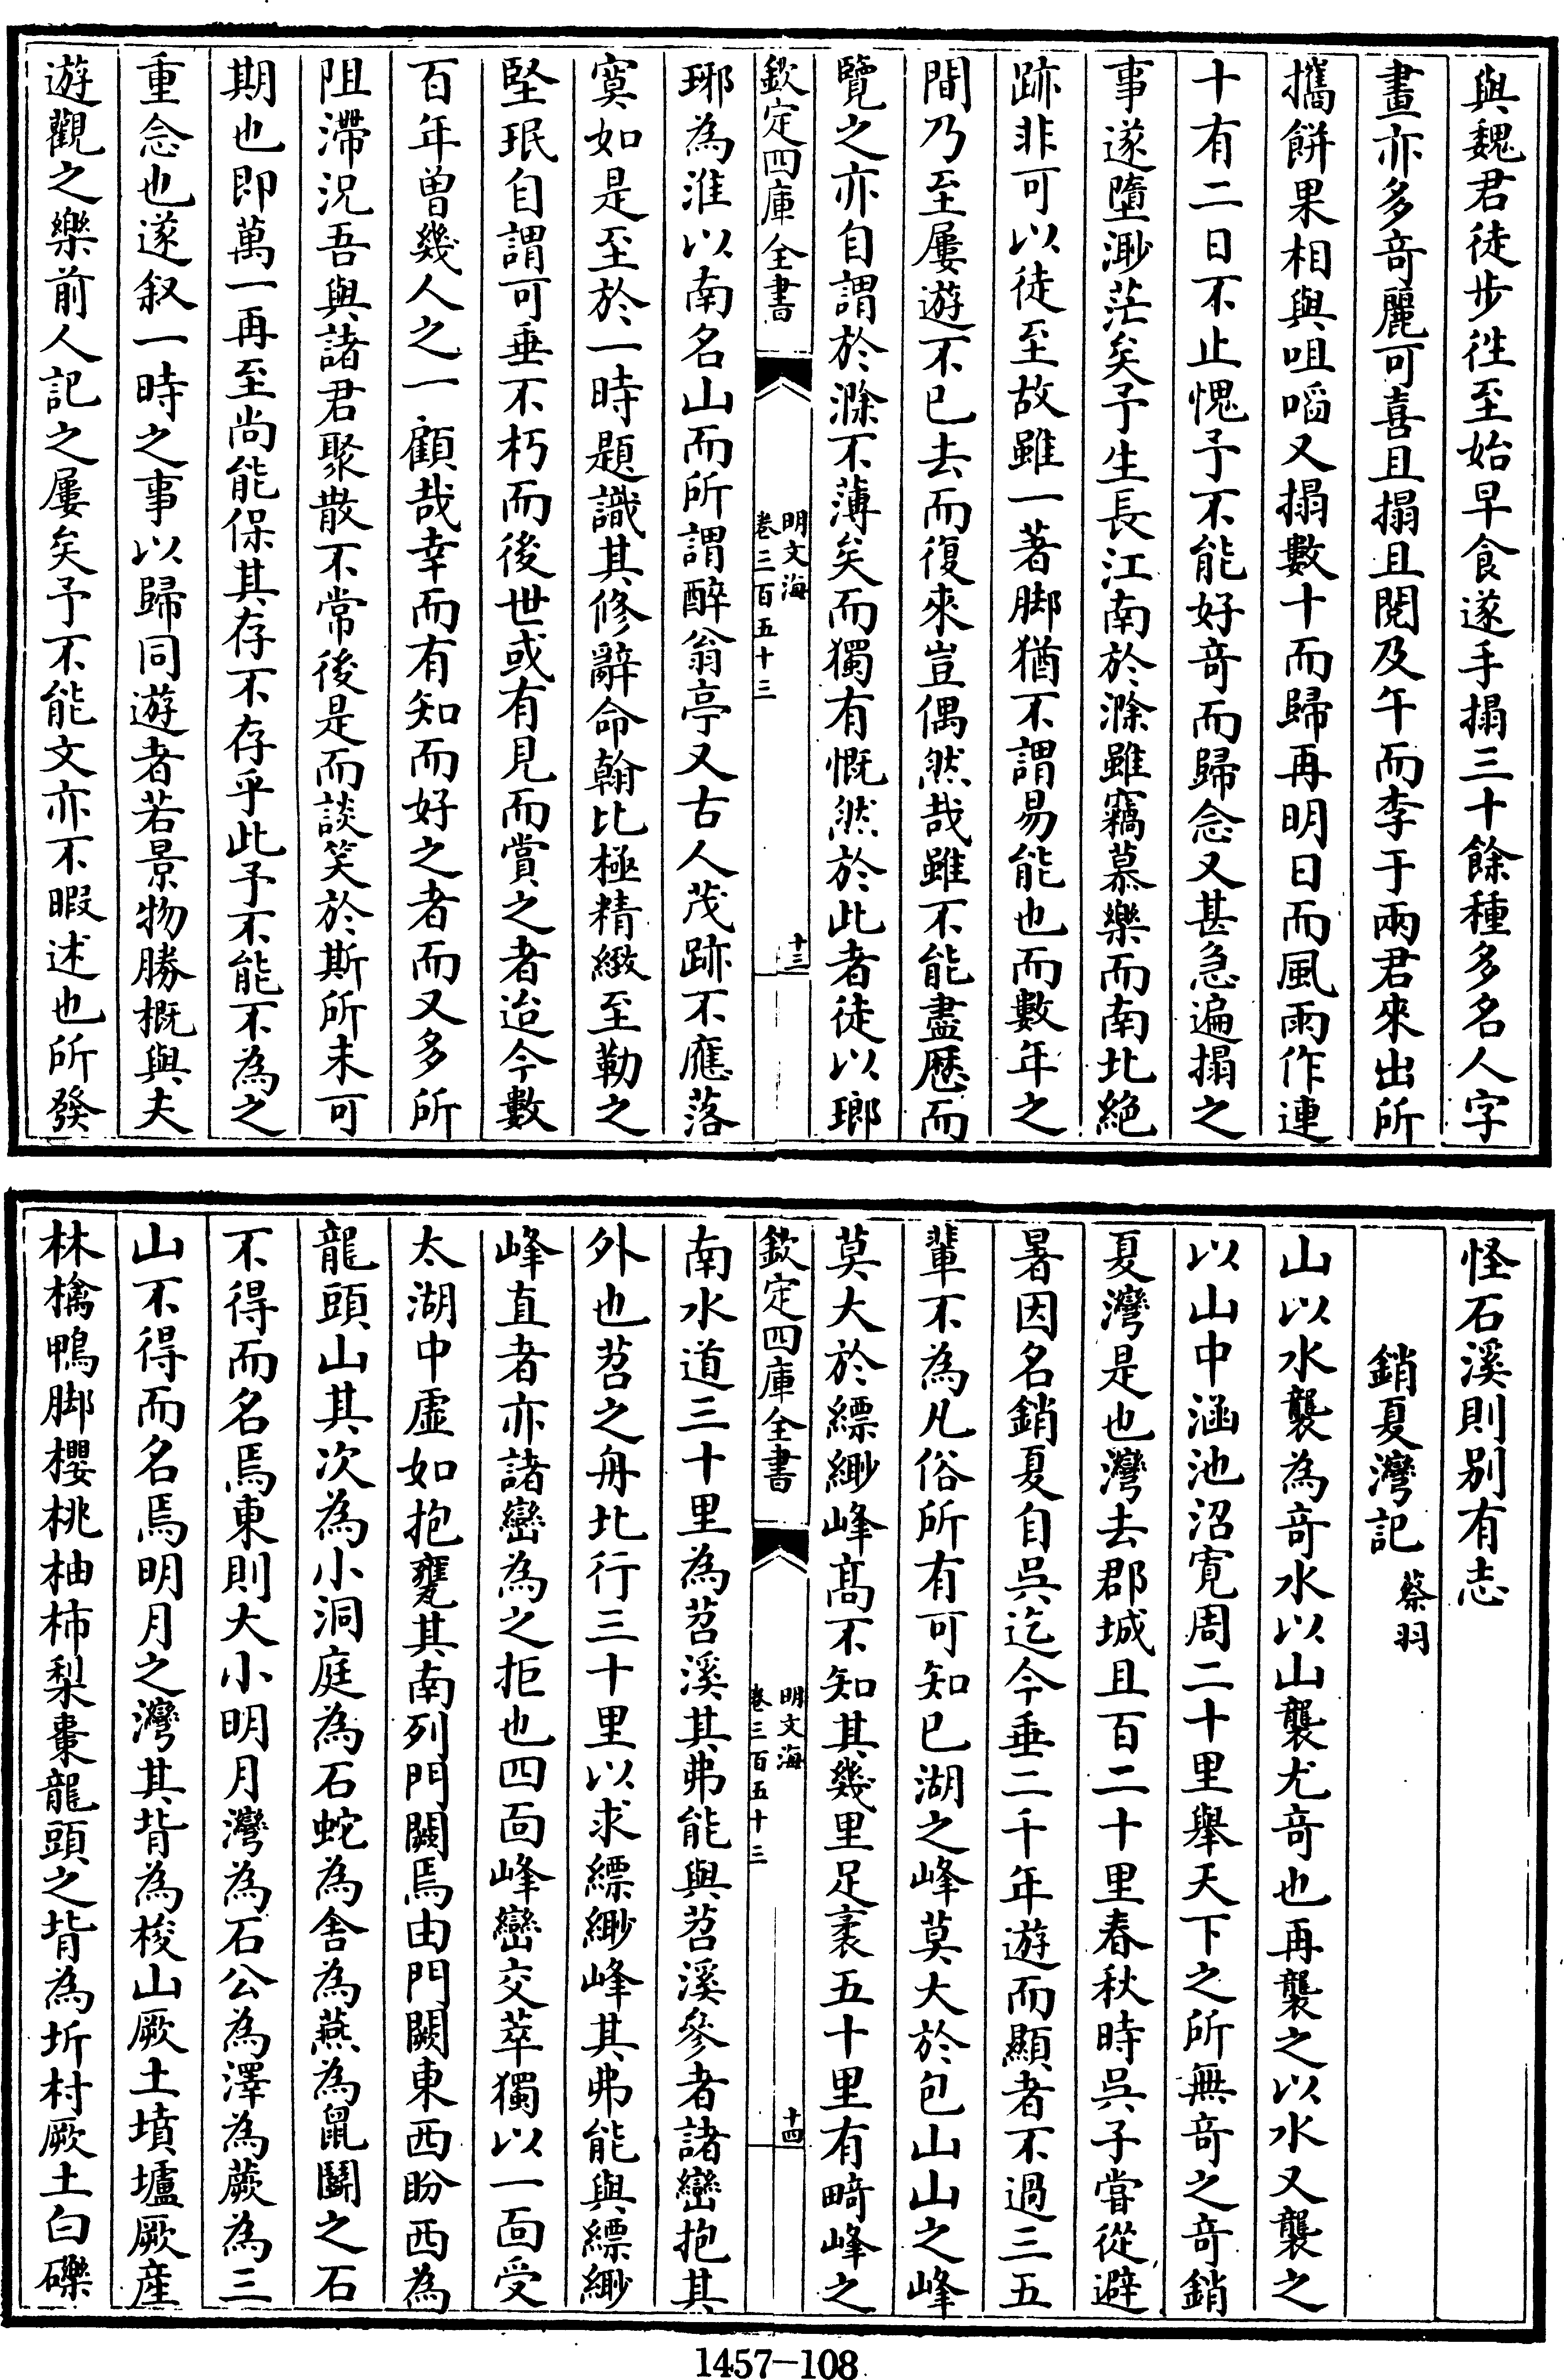 與魏君徒步徃至始早食遂手搨三十餘種多名人字
畫亦多竒麗可喜且搨且閱及午而李于兩君來出所
攜餅果相與咀啗又搨數十而歸再明日而風雨作連
十有二日不止愧予不能好竒而歸念又甚急遍搨之
事遂墮渺茫矣予生長江南於滁雖竊慕樂而南北絶
跡非可以徒至故雖一著脚猶不謂易能也而數年之
間乃至屢遊不已去而復來豈偶然哉雖不能盡歴而
覽之亦自謂於滁不薄矣而獨有慨然於此者徒以瑯
欽定四庫全書
明文海
卷三百五十三
十三
琊為淮以南名山而所謂醉翁亭又古人茂跡不應落
寞如是至於一時題識其修辭命翰比極精緻至勒之
堅珉自謂可垂不朽而後世或有見而賞之者迨今數
百年曽幾人之一顧哉幸而有知而好之者而又多所
阻滯況吾與諸君聚散不常後是而談笑於斯所未可
期也即萬一再至尚能保其存不存乎此予不能不為之
重念也遂叙一時之事以歸同遊者若景物勝概與夫
遊觀之樂前人記之屢矣予不能文亦不暇述也所發
怪石溪則别有志
銷夏灣記 蔡羽
山以水襲為竒水以山襲尤竒也再襲之以水又襲之
以山中涵池沼寛周二十里舉天下之所無竒之竒銷
夏灣是也灣去郡城且百二十里春秋時吳子嘗從避
暑因名銷夏自吳迄今垂二千年遊而顯者不過三五
輩不為凡俗所有可知已湖之峰莫大於包山山之峰
莫大於縹緲峰髙不知其幾里足袤五十里有畸峰之
欽定四庫全書
明文海
卷三百五十三
十四
南水道三十里為苕溪其弗能與苕溪參者諸巒抱其
外也苕之舟北行三十里以求縹緲峰其弗能與縹緲
峰直者亦諸巒為之拒也四面峰巒交萃獨以一面受
太湖中虚如抱甕其南列門闕焉由門闕東西盼西為
龍頭山其次為小洞庭為石蛇為舍為燕為鼠鬬之石
不得而名焉東則大小明月灣為石公為澤為蕨為三
山不得而名焉明月之灣其背為梭山厥土墳壚厥産
林檎鴨脚櫻桃柚柿梨棗龍頭之背為圻村厥土白礫
1457-108